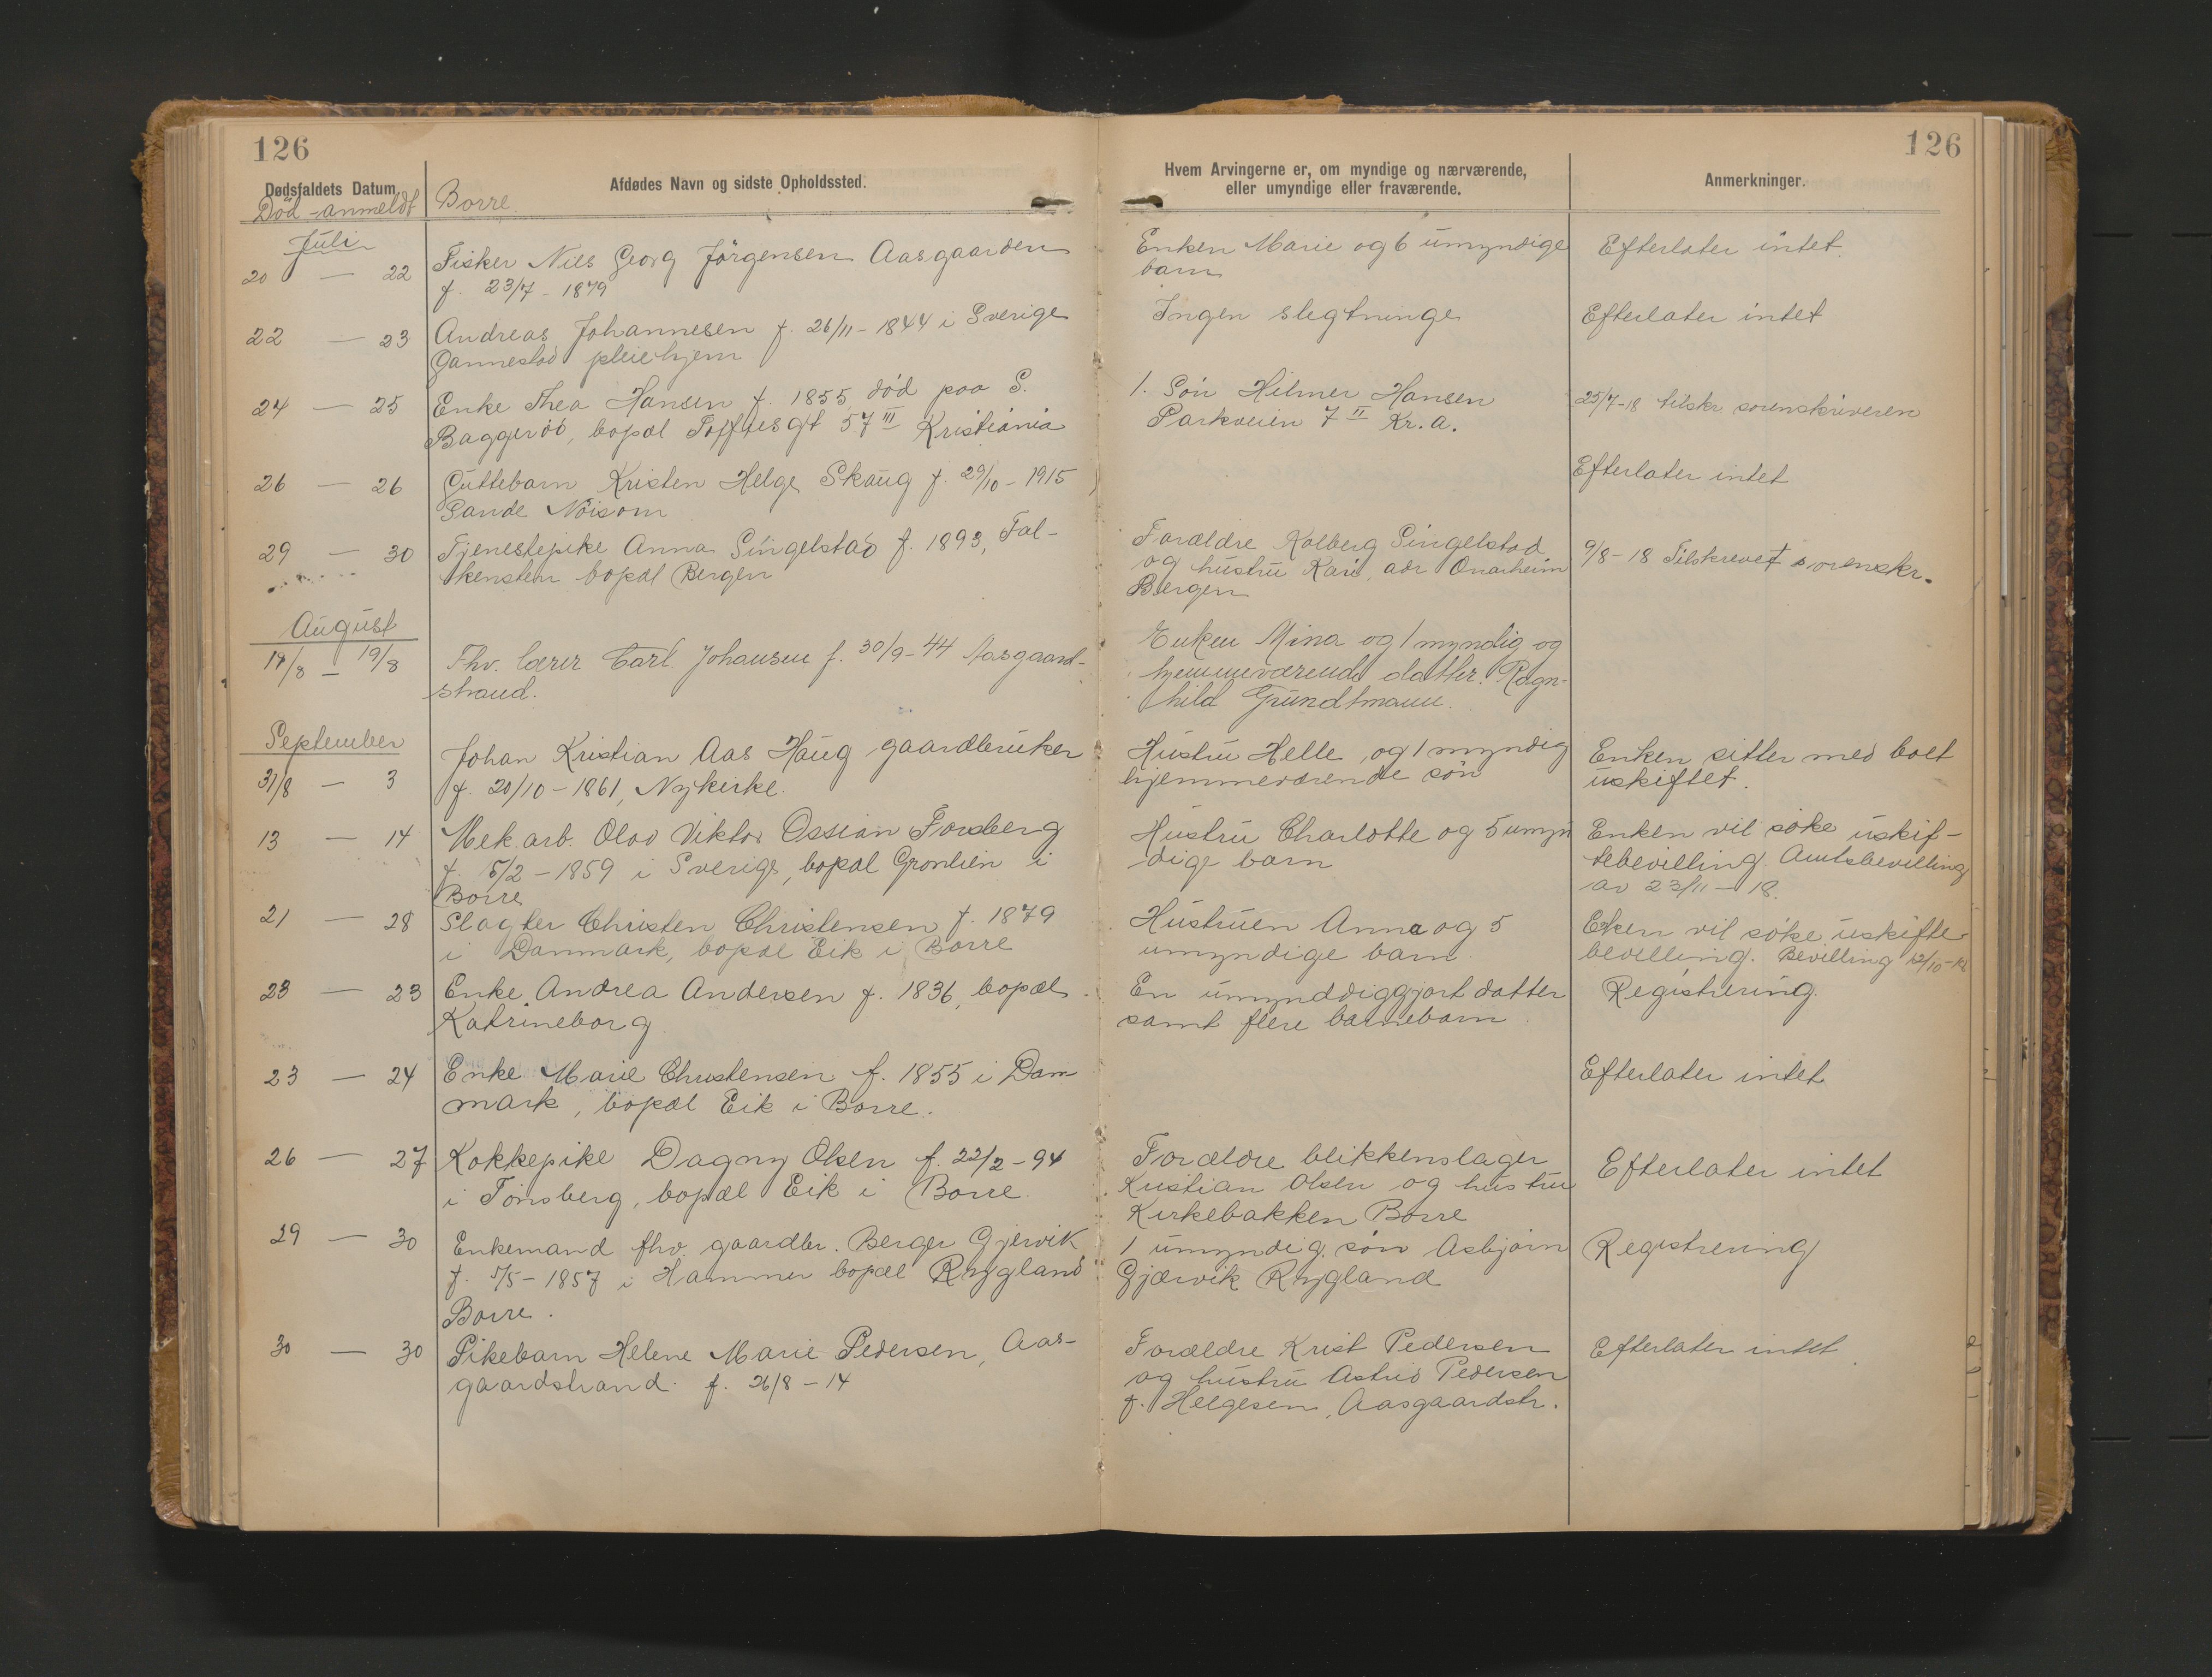 126
126
Dødsfaldets Datum.
Død - anmeldt
Afdødes Navn og sidste Opholdssted.
Borre
Hvem Arvingerne er, om myndige og nærværende,
eller umyndige eller fraværende.
Anmerkninger.
Juli
20 — 22
Fisker Nils Georg Jörgensen Aasgaarden
f. 23/7 - 1879
Enken Marie og 6 umyndige
barn
Efterlater intet.
22 — 23
Andreas Johannesen f. 26/11 - 1844 i Sverige
Gannestad pleiehjem
Ingen slegtninge
Efterlater intet
24 — 25
Enke Thea Hansen f. 1855 død paa S.
Baggerød, bopæl Tofftesgt 57 III Kristiania
1. Sön Hilmer Hansen
Parkveien 7 II Kr.a.
25/7-18 tilskr sorenskriveren
26 — 26
Guttebarn Kristen Helge Skaug f. 29/10 - 1915
Sande Nöisom
Efterlater intet
29 — 30
Tjenestepike Anna Singelstad f. 1893, Fal-
kensten bopæl Bergen
Forældre Kolberg Singelstad
og hustru Kari, adr Onarheim
Bergen
9/8 - 18 Tilskrevet sorenskr.
August
14/8 - 19/8
Fhv. lærer Carl Johansen f. 30/9-44 Aasgaard-
strand.
Enken Mina og 1 myndig og
hjemmeværende datter. Ragn-
hild Grundtmann.
September
31/8 — 3
Johan Kristian Aas Haug gaardbruker
f. 20/10 - 1861, Nykirke.
Hustru Helle, og 1 myndig
hjemmeværende sön
Enken sitter med boet
uskiftet.
13 — 14
Mek. arb. Olov Viktor Ossian Forsberg
f. 5/2 - 1859 i Sverige, bopæl Grönlien i
Borre
Hustru Charlotte og 5 umyn
dige barn
Enken vil söke uskif-
tebevilling. Amtsbevilling
av 23/11 - 18.
21 — 28
Slagter Christen Christensen f. 1879
i Danmark, bopæl Eik i Borre
Hustruen Anna og 5
umyndige barn
Enken vil söke uskifte
bevilling. Bevilling 12/10-18
23 — 23
Enke Andrea Andersen f. 1836, bopæl
Katrineborg
En umynddiggjort datter
samt flere barnebarn.
Registrering.
23 — 24
Enke Marie Christensen f. 1855 i Dan
mark, bopæl Eik i Borre.
Efterlater intet
26 — 27
Kokkepike Dagny Olsen f. 22/2 - 94
i Tönsberg, bopæl Eik i Borre
Forældre blikkenslager
Kristian Olsen og hustru
Kirkebakken Borre
Efterlater intet
29 — 30
Enkemand fhv. gaardbr. Berger Gjervik
f. 1/5 - 1857 i Hammer bopæl Rygland
Borre.
1 umyndig sön Asbjörn
Gjærvik Rygland
Registrering
30 — 30
Pikebarn Helene Marie Pedersen, Aas-
gaardstrand. f. 26/8 - 14
Forældre Krist Pedersen
og hustru Astrid Pedersen
f. Helgesen, Aasgaardstr.
Efterlater intet.